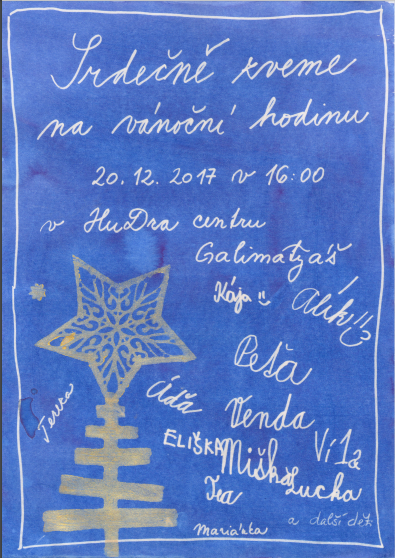 Srdečně zveme
na vánoční hodinu
20. 12. 2017 v 16:00
v HuDra centru
Galimatyáš
Kája
Alík
Peťa
Áďa
Terka
Venda
ELIŠKA
Miška
Lucka
Tea
Mariánka
a další děti